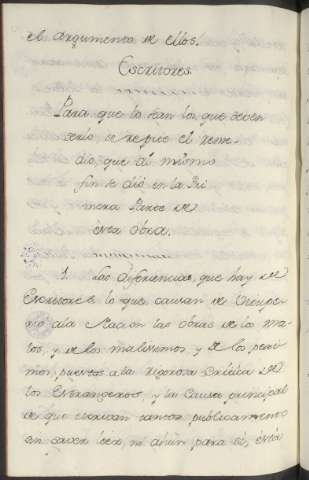 el argumento de ellos.
Escritores.
Para que lo sean los que deven
serlo, se repite el reme-
dio, que al mismo
fin se dió en la Pri
mera Parte de
esta obra.
1. Las diferiencias, que hay de
Escritores, lo que causan de
dia Nacion las obras de los Ma-
los, y de los malissimos, y de los pessi
mos, puestos a la rigorosa Critica de
los Estrangeros, y la Causa principal
de que escrivan tantos publicamente
sin saver leer, ni aun para sí, está